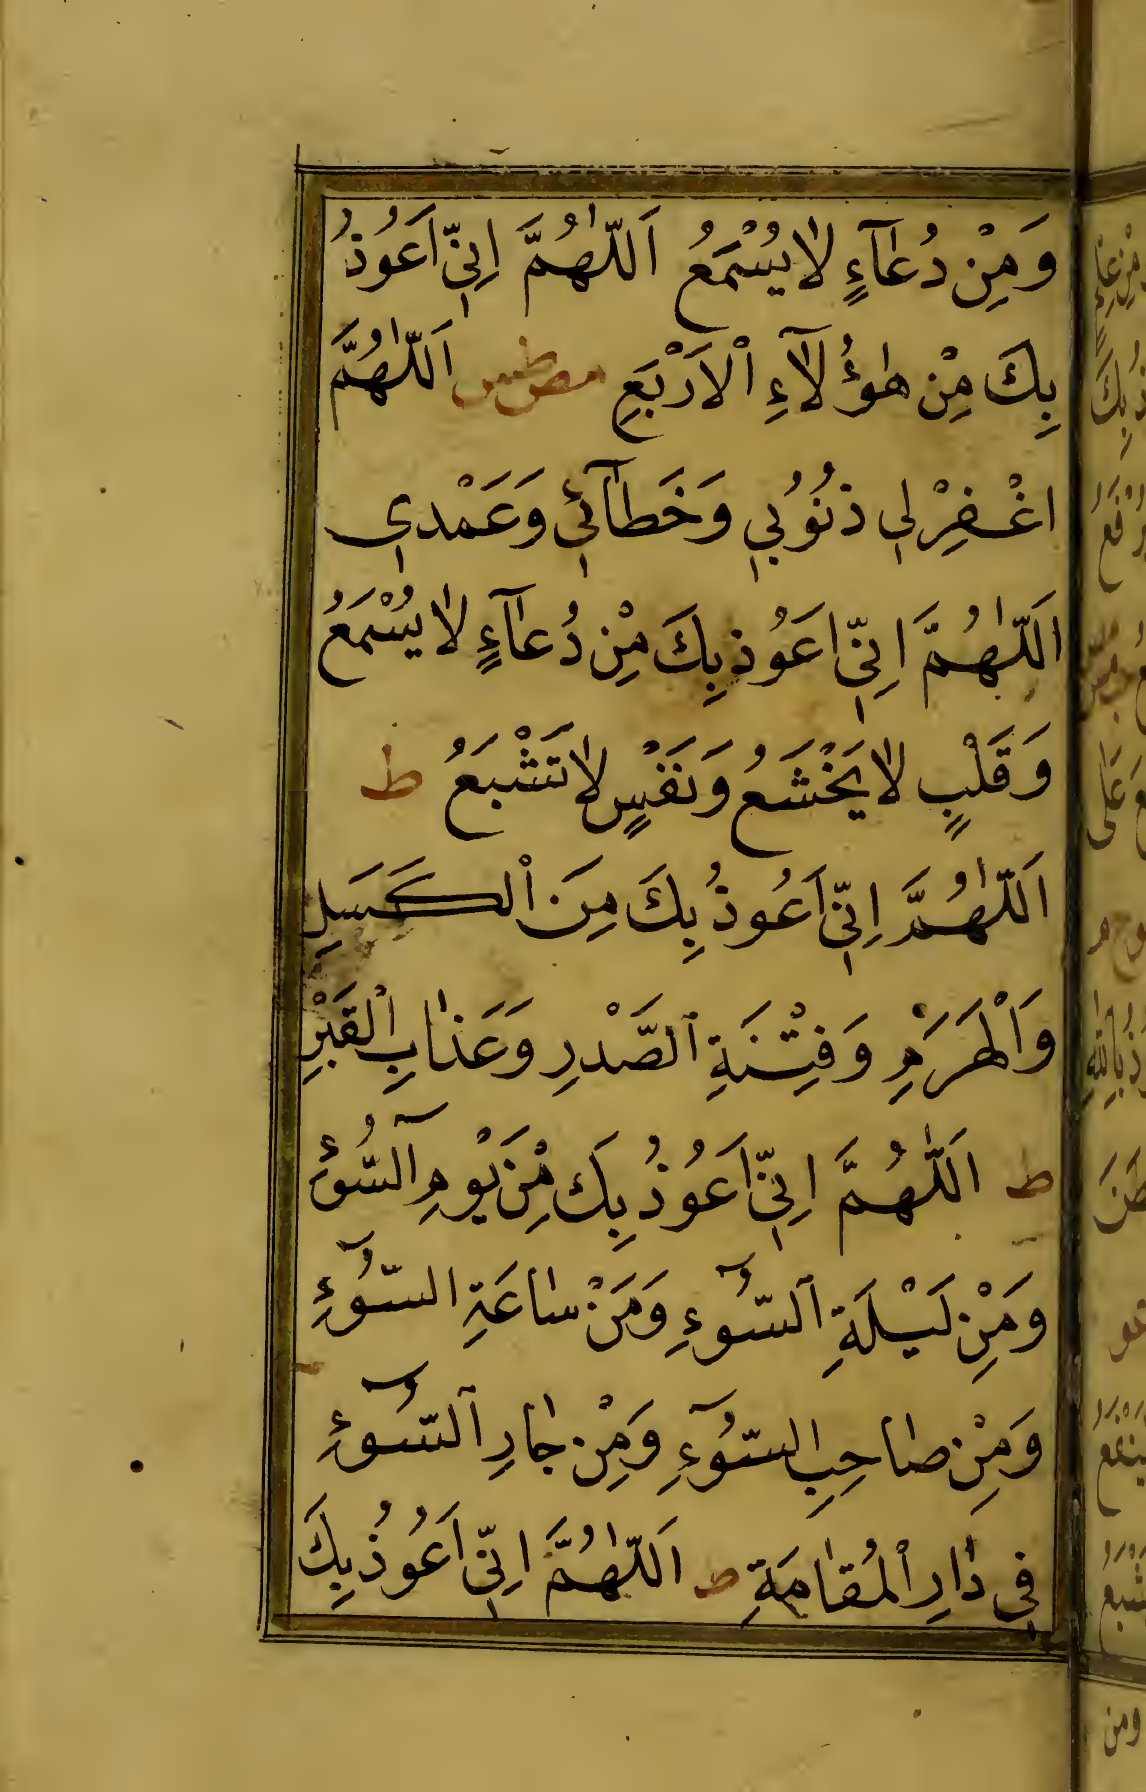 وَمِنْ دُعَآءٍ لَا يُسْمَعُ اَللّٰهُمَّ اِنِّي اَعُوذُ
بِكَ مِنْ هٰؤُلَآءِ الْاَرْبَعِ مص طس اَللّٰهُمَّ
اغْفِرْ لِي ذُنُوبِي وَخَطَآئِي وَعَمْدِي
اَللّٰهُمَّ اِنِّي اَعُوذُ بِكَ مِنْ دُعَآءٍ لَا يُسْمَعُ
وَقَلْبٍ لَا يَخْشَعُ وَنَفْسٍ لَا تَشْبَعُ ط
اَللّٰهُمَّ اِنِّي اَعُوذُ بِكَ مِنَ الْكَسَلِ
وَالْهَرَمِ وَفِتْنَةِ الصَّدْرِ وَعَذَابِ الْقَبْرِ
ط اَللّٰهُمَّ اِنِّي اَعُوذُ بِكَ مِنْ يَوْمِ السُّوْءِ
وَمِنْ لَيْلَةِ السُّوْٓءِ وَمِنْ سَاعَةِ السُّوْٓءِ
وَمِنْ صَاحِبِ السُّوْٓءِ وَمِنْ جَارِ السُّوْٓءِ
فِي دَارِ الْمُقَامَةِ ط اَللّٰهُمَّ اِنِّي اَعُوذُ بِكَ
ومن